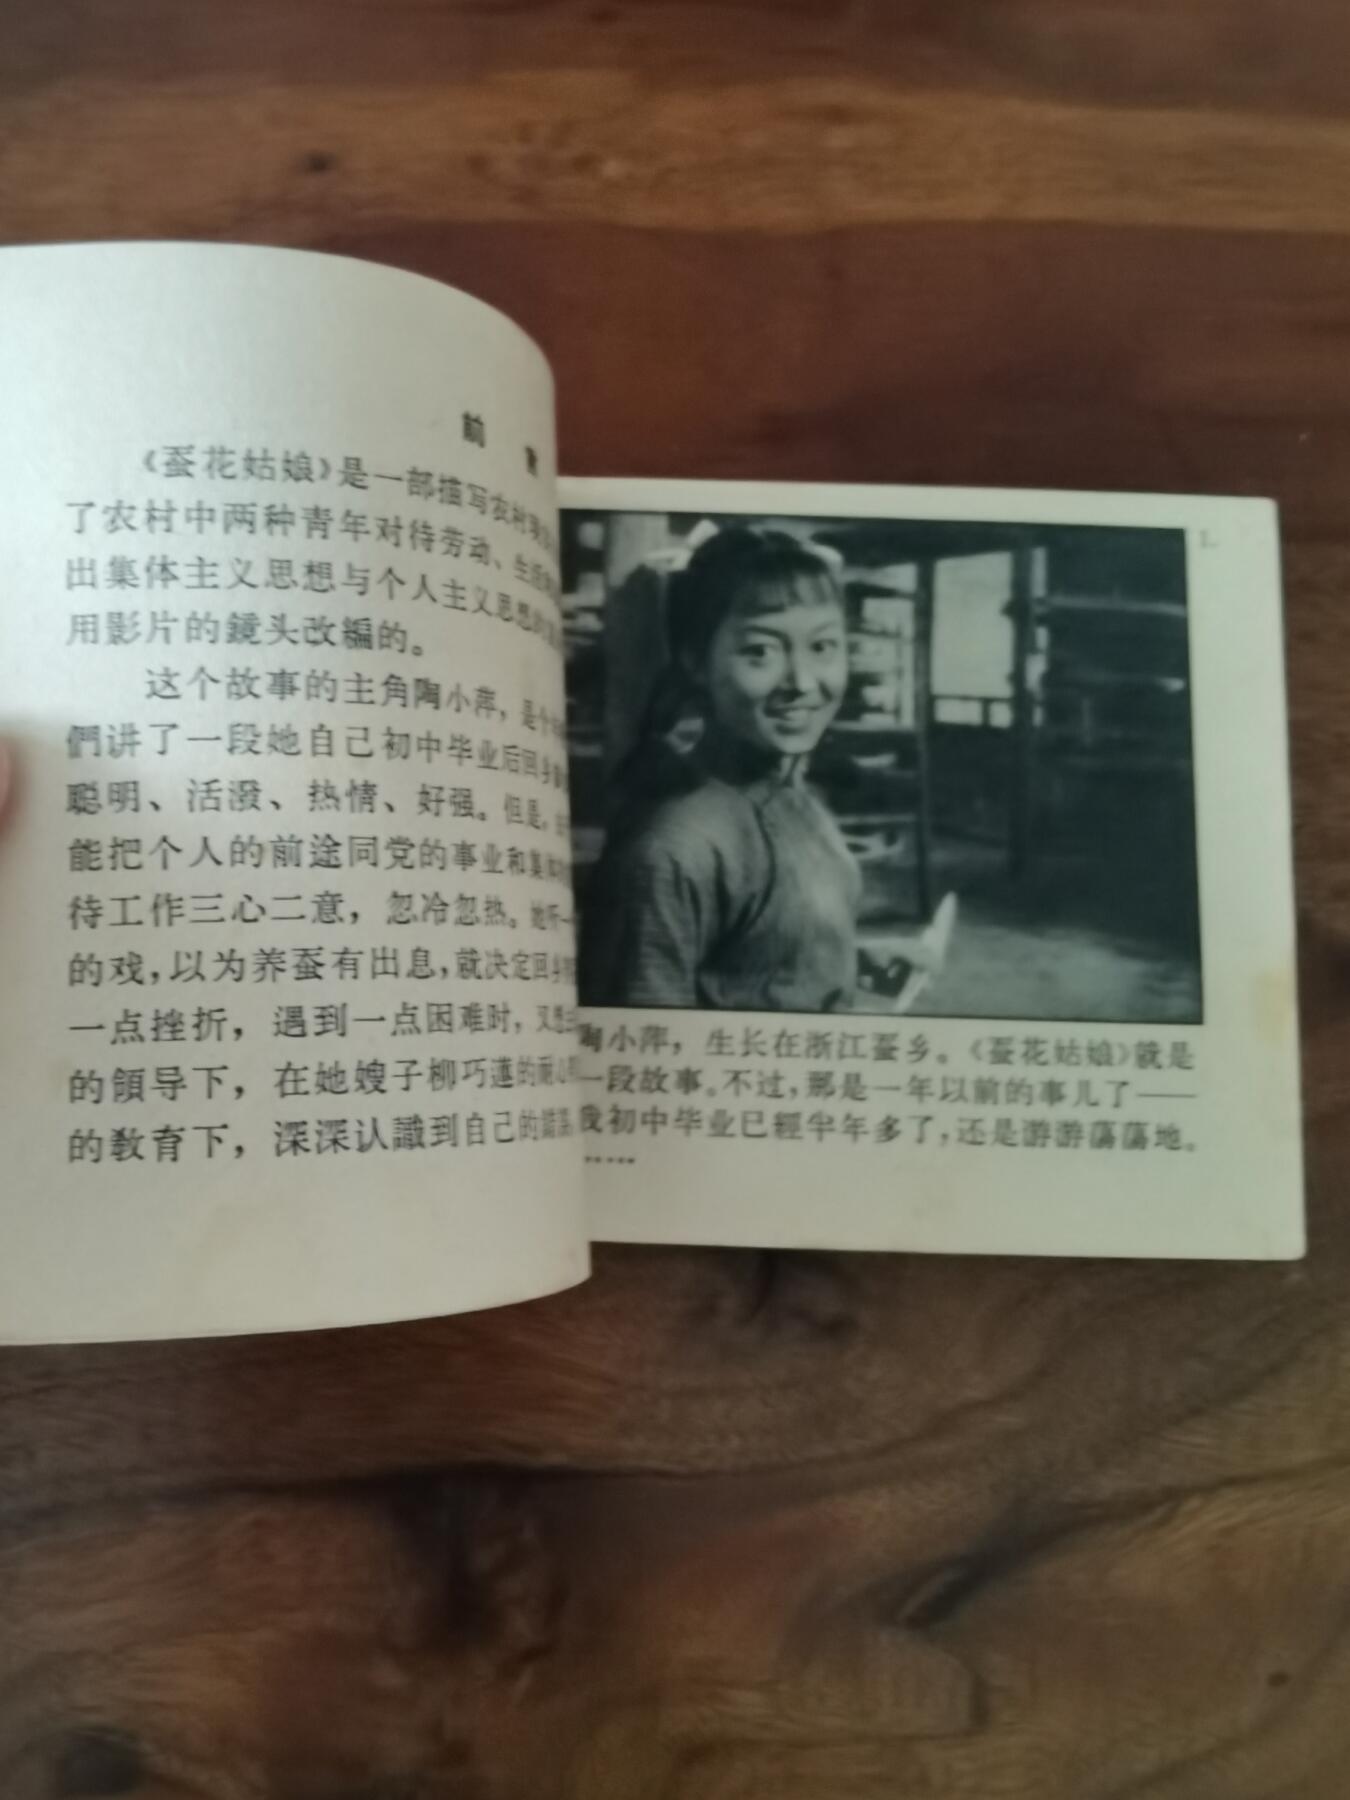 前
《蚕花姑娘》是一部描写农村
了农村中两种青年对待劳动、生活
出集体主义思想与个人主义思想的
用影片的鏡头改編的。
这个故事的主角陶小萍，是个
們讲了一段她自己初中毕业后回乡
聪明、活潑、热情、好强。但是，
能把个人的前途同党的事业和集体
待工作三心二意，忽冷忽热。她听一
的戏，以为养蚕有出息，就决定回乡
一点挫折，遇到一点困难时，又想
的領导下，在她嫂子柳巧蓮的耐心
的教育下，深深认識到自己的錯誤
1.
陶小萍，生长在浙江蚕乡。《蚕花姑娘》就是
一段故事。不过，那是一年以前的事儿了——
我初中毕业已經半年多了，还是游游蕩蕩地。
……